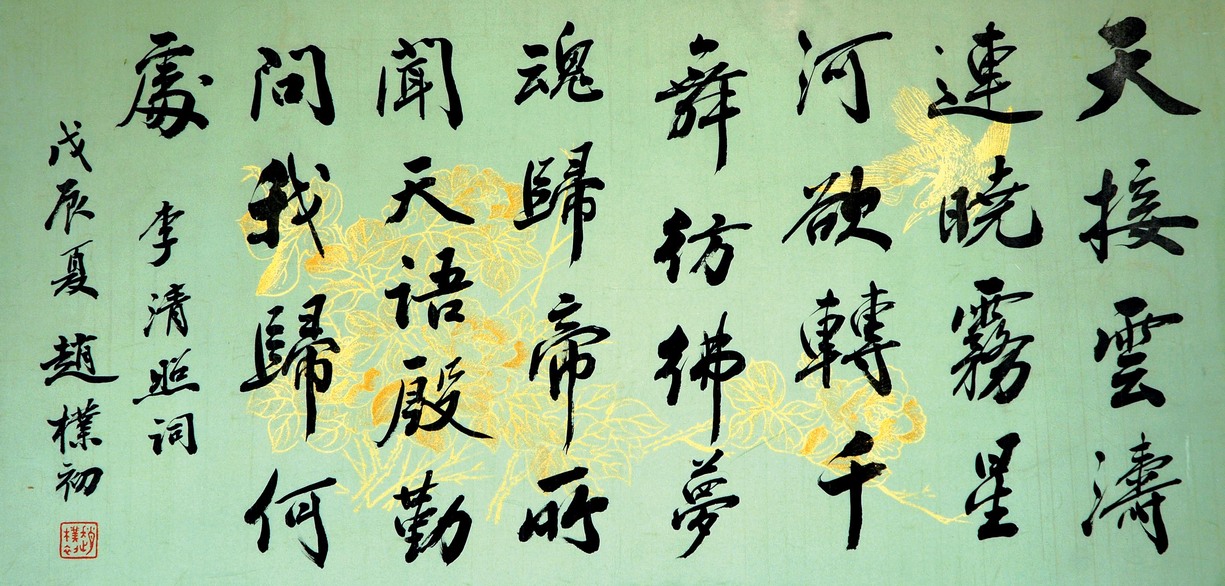 天接雲濤
連曉霧星
河欲轉千
舞彷彿夢
魂歸帝所
聞天語殷勤
問我歸何
處
李清照詞
戊辰夏 趙樸初
趙樸初